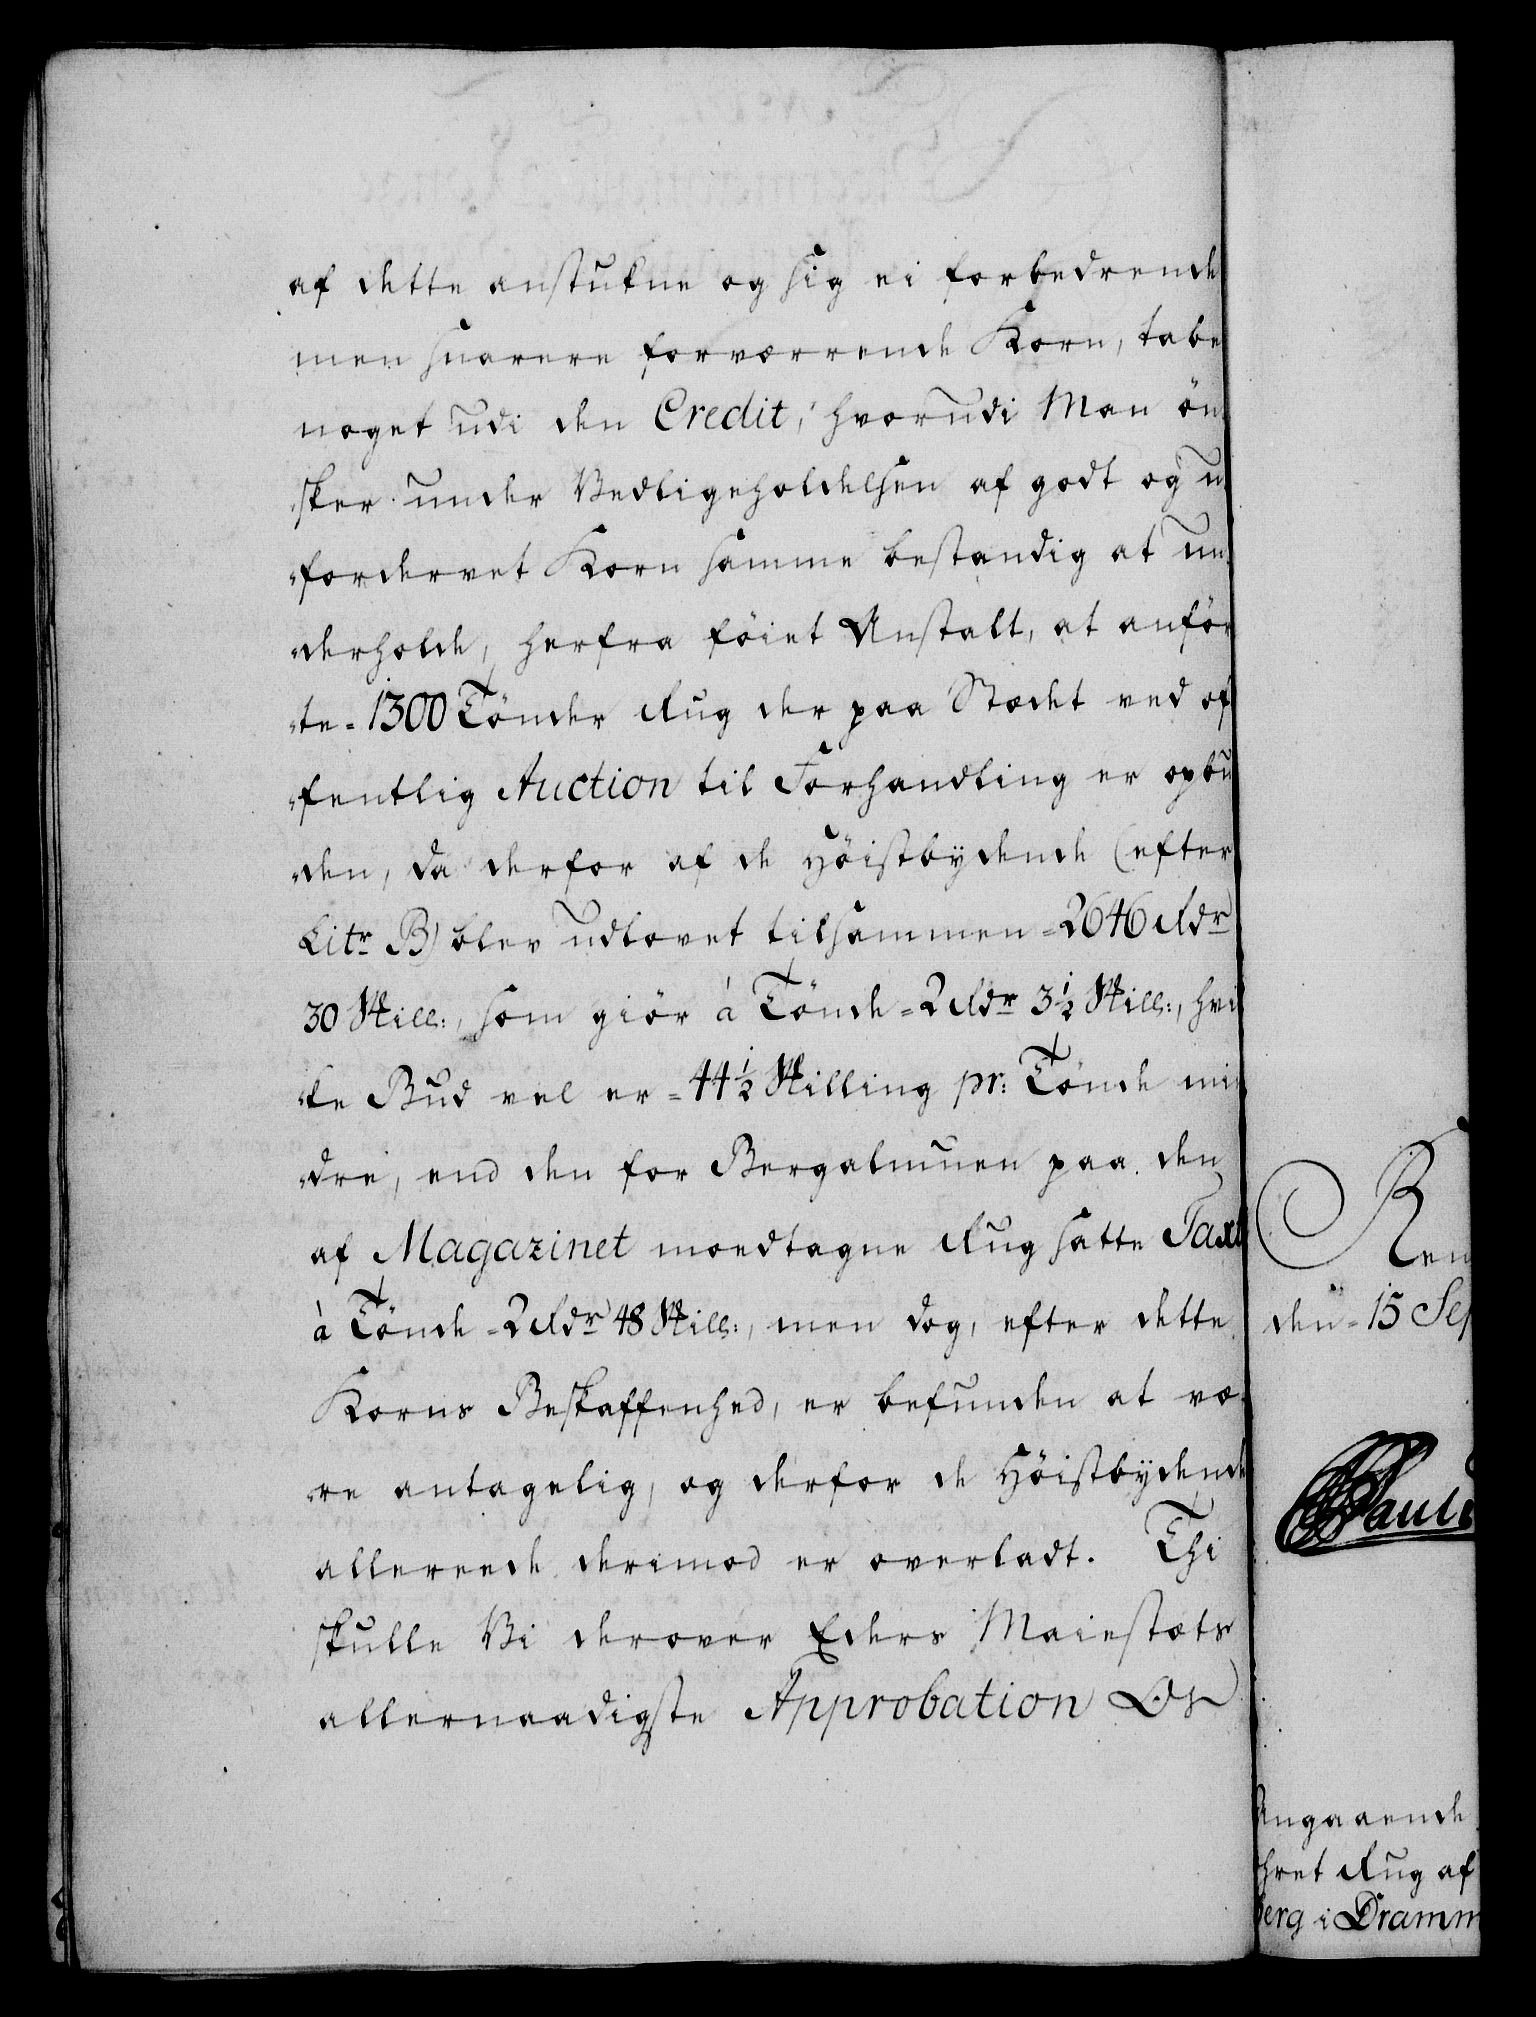 af dette anstukne og sig ei forbedrende
men snarere forværrende Korn, tabe
noget udi den Credit, hvorudi Man ön-
sker under Vedligeholdelsen af godt og u-
fordervet Korn samme bestandig at un-
derholde, herfra föiet Anstalt, at anför
te 1300 Tönder Rug der paa Stædet ved of
fentlig Auction til Forhandling er opbu
den, da derfor af de Höistbydende (efter
Litr B) blev udlovet tilsammen 2646 Rdr
30 Skill:, som giör á Tönde 2 Rdr 3½ Skill:, hvil
ke Bud vel er 44½ Skilling pr: Tönde min
dre, end den for Bergalmuen paa den
af Magazinet modtagne Rug satte Taxt
à Tönde 2 Rdr 48 Skill:, men dog, efter dette
Korns Beskaffenhed, er befunden at væ-
re antagelig, og derfor de Höistbydende
allereede derimod er overladt. Thi
skulle Vi derover Eders Maiestæts
allernaadigste Approbation
Ren
den 15 Sep
Angaaende
hret Rug af
berg i Dramm